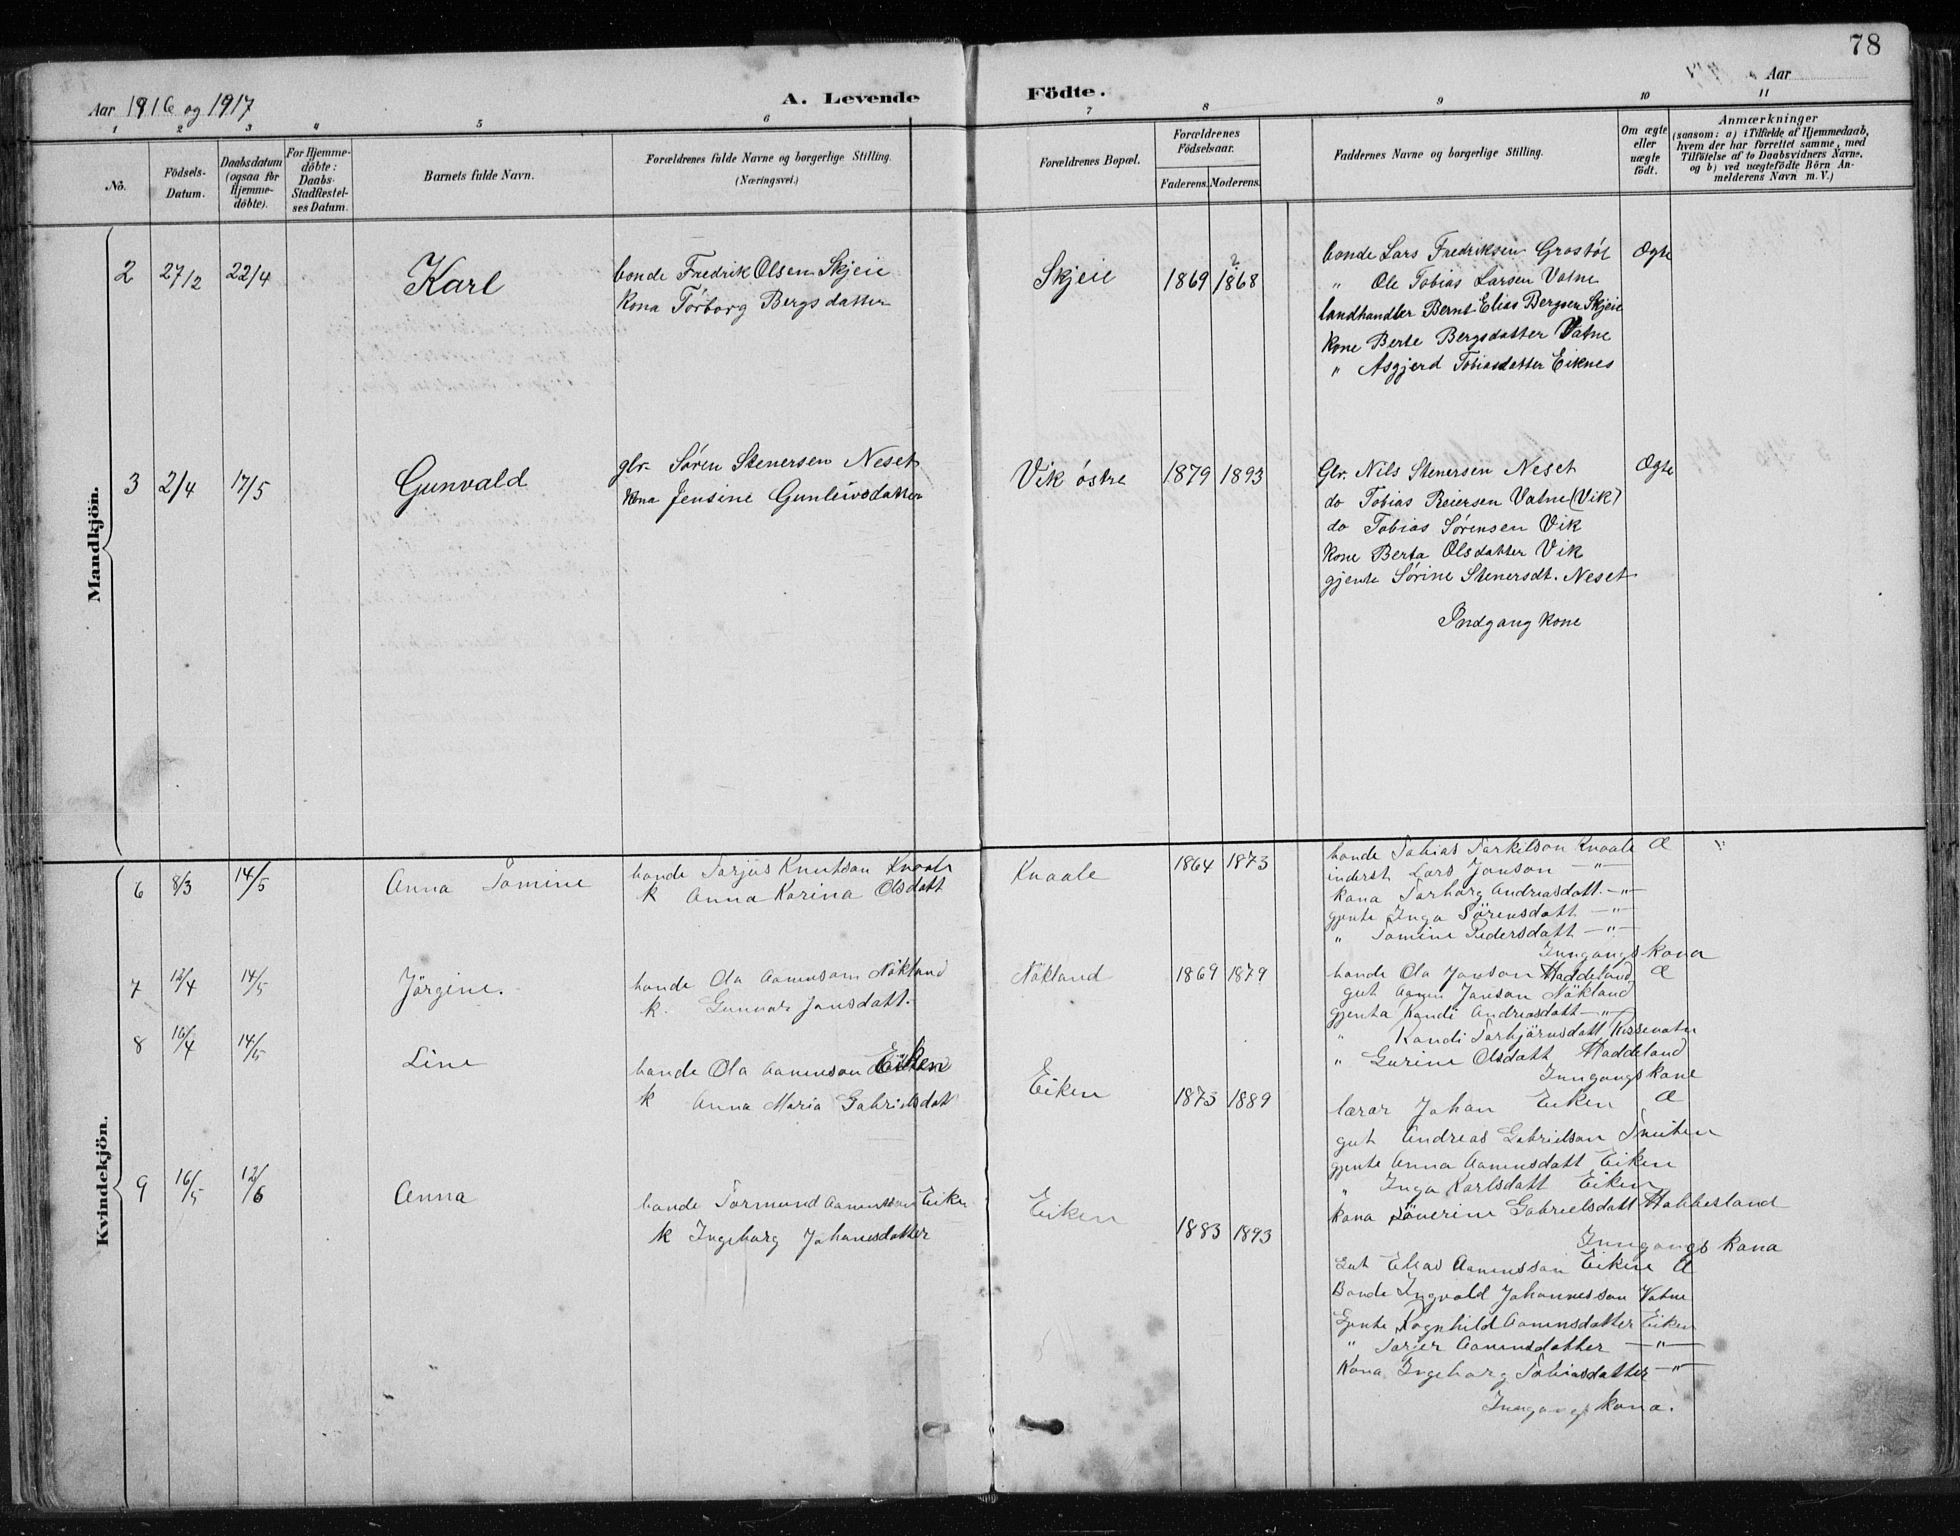 78
Aar 1916 og 1917
A. Levende Födte.
Aar
1 2 3 4 5 6 7 8 9 10 11
No.
Födsels-Datum.
Daabsdatum (ogsaa for Hjemme-döbte).
For Hjemme-döbte: Daabs-Stadfæstel-ses Datum.
Barnets fulde Navn.
Forældrenes fulde Navne og borgerlige Stilling.
(Næringsvei.)
Forældrenes Bopæl.
Forældrenes Födselsaar.
Faderens. Moderens.
Faddernes Navne og borgerlige Stilling.
Om ægte eller uægte født.
Anmærkninger
(saasom: a) i Tilfælde af Hjemmedaab, hvem der har forrettet samme, med Tilföielse af to Daabsvidners Navne, og b) ved uægtefödte Börn An-melderens Navn m. V.)
Mandkjön.
2 27/2 22/4 Karl
bonde Fredrik Olsen Skjeie
Kona Torborg Bergsdatter
Skjeie 1869 1868
bonde Lars Fredriksen Grostøl Ægte
" Ole Tobias Larsen Vatne
landhandler Bernt Elias Bergsen Skjeie
Kone Berte Bergsdatter Vatne
" Asgjerd Tobiasdatter Eiknes
3 2/4 17/5 Gunvald
glr. Søren Stenersen Neset
Kona Jensine Gunleivsdatter
Vik østre 1879 1893
Glr. Nils Stenersen Neset Ægte
do Tobias Reiersen Vatne (Vik)
do Tobias Sørensen Vik
Kone Berta Olsdatter Vik
gjente Sørine Stenersdt. Neset
Indgang kone
Kvindekjön.
6 8/3 14/5 Anna Tomine
bonde Tarjus Knutson Knaale
k Anna Karina Olsdatt
Knaale 1864 1873
bonde Tobias Tarkelson Knaale Æ "
inderst Lars Janson — " —
kona Torborg Andreasdatt. — " —
gjente Inga Sörensdatt — " —
" Tomine Pedersdatt — " —
Inngangskona
7 12/4 14/5 Jörgine.
bonde Ola Aanenson Nökland
k. Gunvor Jonsdatt.
Nökland 1869 1879
bonde Ola Janson Haddeland Æ
gut Aanen Janson Nökland
gjenta Kandi Andreasdatt — " —
" Kandi Torbjörnsdatt
" Gurine Olsdatt Haddeland
Inngangskone
8 16/4 14/5 Line
bonde Ola Aanenson Eiken
k Anna Maria Gabrielsdatt
Eiken 1873 1889
lærar Johan Eiken Æ
gut Andreas Gabrielson
gjente Anna Aanensdatt Eiken
" Inga Karlsdatt Eiken
kona Söverine Gabrielsdatt Habbesland
Inngangs kona
9 16/5 12/6 Anna
bonde Tormund Aanensson Eiken
k Ingeborg Johannesdatter
Eiken 1883 1893
Gut Elias Aanensson Eiken Æ
Bonde Ingvald Johannesson Vatne
Gjente Ragnhild Aanensdatter Eiken
" Tarjer Aanensdatter — " —
Kona Ingeborg Tobiasdatter — " —
Inngangs kona.